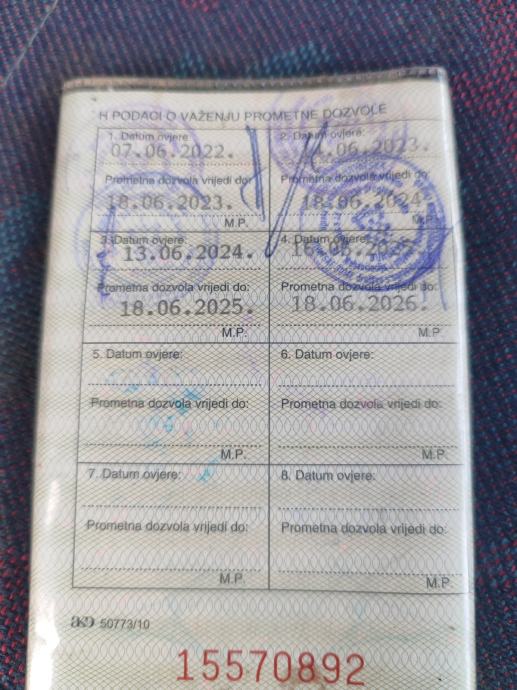 H PODACI O VAŽENJU PROMETNE DOZVOLE
1. Datum ovjere:
07.06.2022.
Prometna dozvola vrijedi do:
18.06.2023.
M.P.
2. Datum ovjere:
Prometna dozvola vrijedi do:
18.06.2024.
M.P.
3. Datum ovjere:
13.06.2024.
Prometna dozvola vrijedi do:
18.06.2025.
M.P.
4. Datum ovjere:
Prometna dozvola vrijedi do:
18.06.2026.
M.P.
5. Datum ovjere:
Prometna dozvola vrijedi do:
M.P.
6. Datum ovjere:
Prometna dozvola vrijedi do:
M.P.
7. Datum ovjere:
Prometna dozvola vrijedi do:
M.P.
8. Datum ovjere:
Prometna dozvola vrijedi do:
M.P.
akd 50773/10
15570892